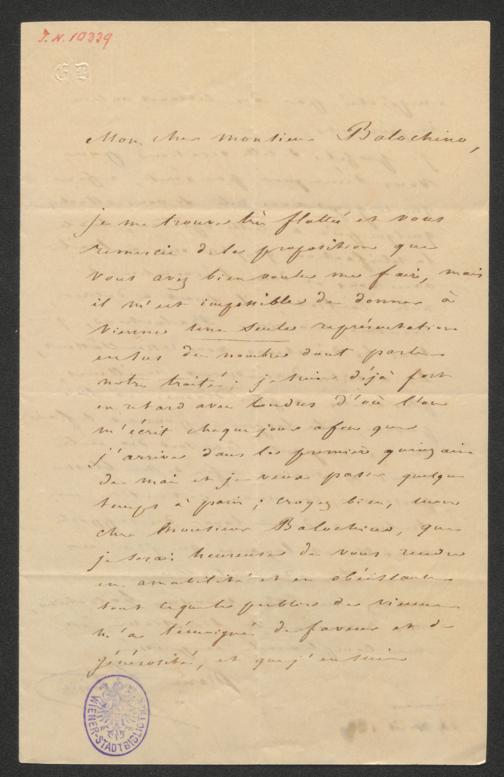 J.N. 10339
Mon cher monsieur Balochino,
je me trouve très flattée et vous
remercie de la proposition que
vous avez bien voulu me faire, mais
il m'est impossible de donner à
Vienne une seule représentation
en sus du nombre dont parle
notre traité; je suis déjà fort
en retard avec Londres d'où l'on
m'écrit chaque jour afin que
j'arrive dans la première quinzaine
de mai et je veux passer quelque
temps à paris; croyez bien, mon
cher Monsieur Balochino, que
je serai heureuse de vous rendre
en amabilité et en obéissance
tout ce que le public de vienne
m'a témoigné de faveur et de
générosité, et que j'en suis
WIENER-STADTBIBLIOTHEK